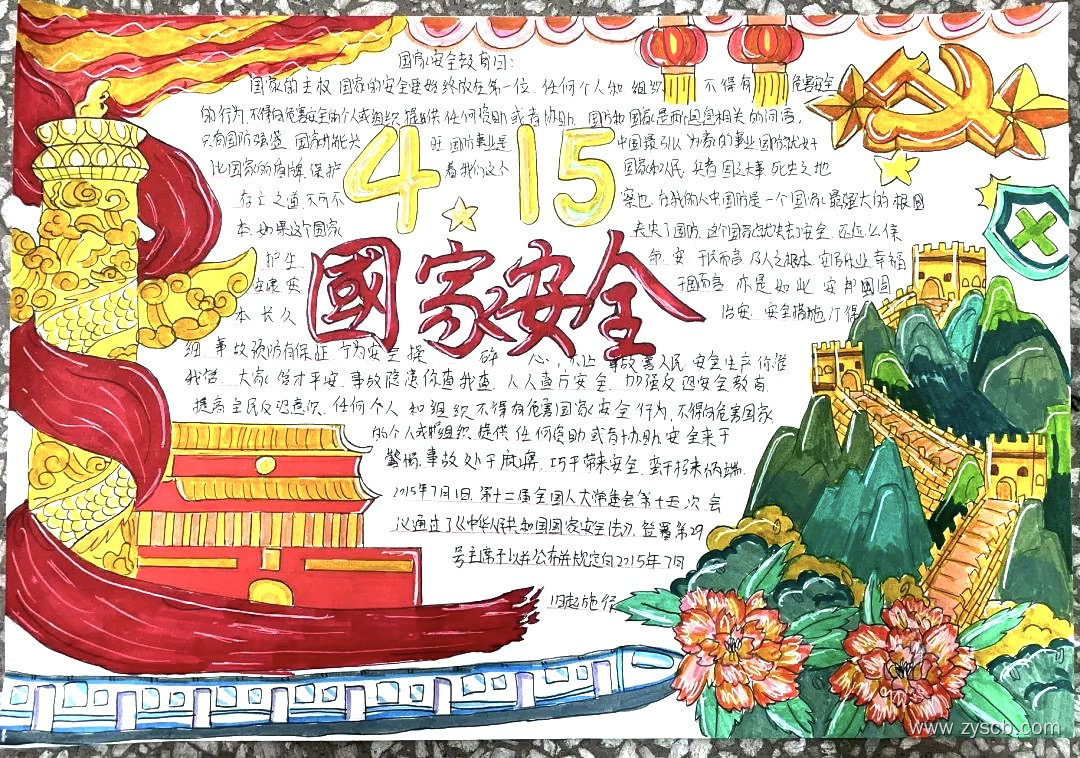 国家安全教育日:
国家的主权 国家的安全要始终放在第一位.任何个人和组织 不得有 危害安全
的行为.不得向危害安全的个人或组织 提供任何资助或者协助. 国防和国家是两个息息相关的词语,
只有国防强盛 国家才能兴 旺 国防事业是 中国最引以为豪的事业国防就好
比国家的盾牌 保护 着我们这个 国家和人民 兵者国之大事 死生之地
存亡之道 不可不 察也 在我的人中国防是一个国家最强大的根固
本 如果这个国家 失去了国防 这个国家也就失去安全 还怎么保
护生 命 安 于民而言 乃人之根本 安乃乐业幸福
于国而言 亦是如此 安邦固国
本 长久 治安. 安全措施订得
4 15
國家安全
细. 事故预防有保证 行为安全提 心,不让 事故害人民 安全生产你管
我管. 大家管才平安.事故隐患你查我查. 人人查方安全. 加强反迟安全教育
提高全民反迟意识.任何个人 和组织不得有危害国家安全行为.不得向危害国家
的个人或组织 提供任何资助或者协助.安全来于
警惕.事故处于麻痹.巧干带来安全 蛮干招来祸端.
2015年7月1日,第十二届全国人大常委会第十五次会
议通过了《中华人民共和国国家安全法》,签署第29
号主席令以并公布并规定自2015年7月
1日起施行
www.zyscb.com